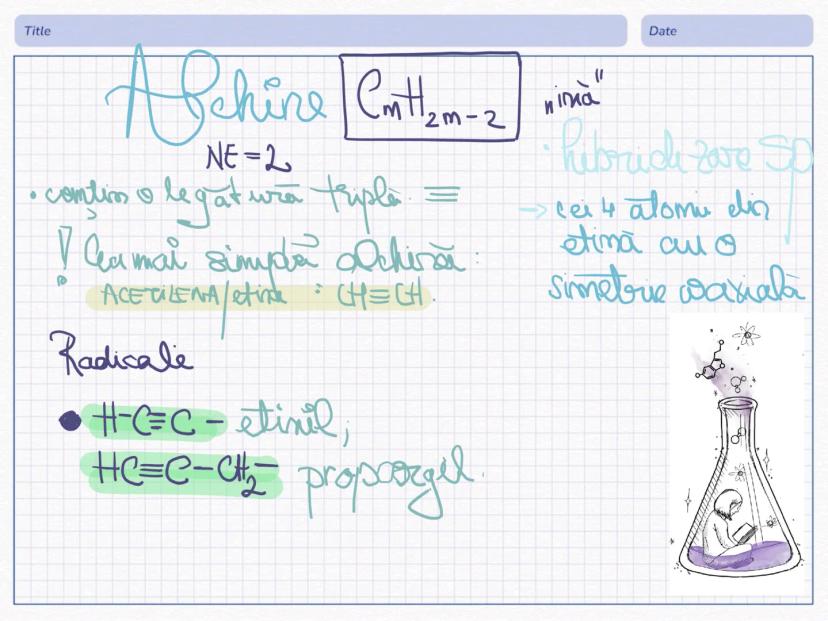 Title
Date
Alchine
CnH2n-2
„ină"
NE=2
• hibridizare SP
• conțin o legătură triplă ≡
→ cei 4 atomi din
etină au o
simetrie coaxială
! Cea mai simplă alchină:
ACETILENA/etina : CH≡CH.
Radicalii
● H-C≡C- etinil;
HC≡C-CH2- propargil.